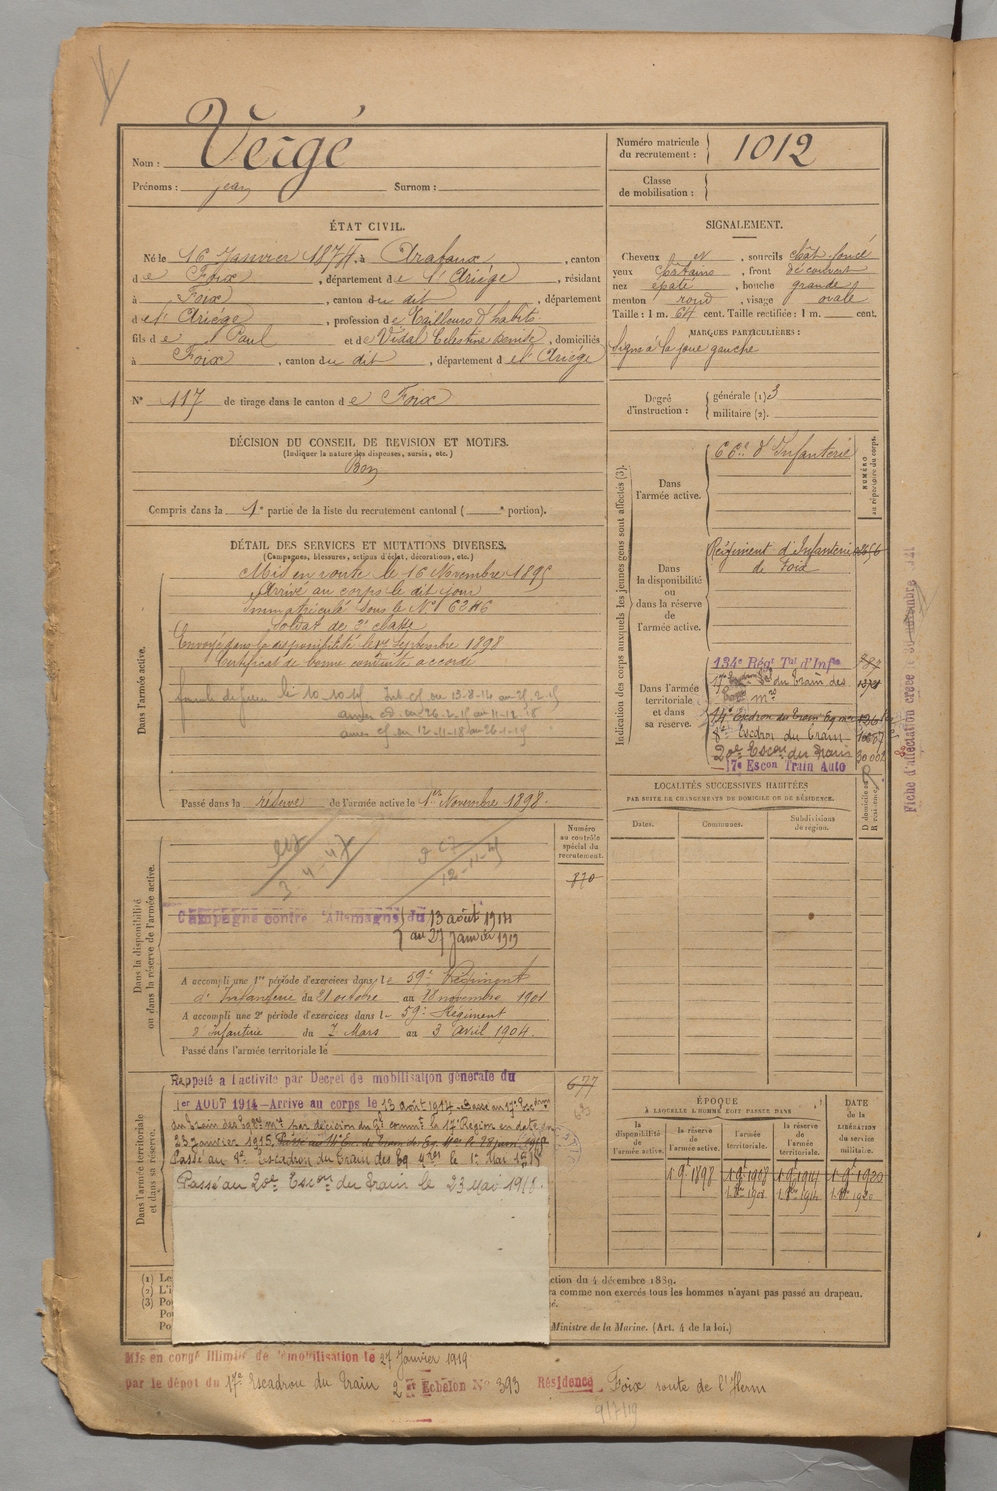 Nom : Vergé
Prénoms : jean Surnom :
Numéro matricule du recrutement : 1012
Classe de mobilisation :
ÉTAT CIVIL.
Né le 16 Janvier 1874, à Arabaux, canton
de Foix, département de l'Ariége, résidant
à Foix, canton du dit, département
de l'Ariége, profession de Tailleurs d'habits
fils de Paul et de Vidal Celestine, domiciliés
à Foix, canton du dit, département de l'Ariége
N° 117 de tirage dans le canton de Foix
SIGNALEMENT.
Cheveux et, sourcils Chât. foncé
yeux Châtains, front découvert
nez épaté, bouche grande
menton rond, visage ovale
Taille : 1 m. 64 cent. Taille rectifiée : 1 m. cent.
MARQUES PARTICULIÈRES :
Signe à la joue gauche
Degré d'instruction : générale (1) 3
militaire (2).
DÉCISION DU CONSEIL DE REVISION ET MOTIFS.
(Indiquer la nature des dispenses, sursis, etc.)
Bon
Compris dans la 1e partie de la liste du recrutement cantonal ( e portion).
DÉTAIL DES SERVICES ET MUTATIONS DIVERSES.
(Campagnes, blessures, actions d'éclat, décorations, etc.)
Dans l'armée active.
Mis en route le 16 Novembre 1895
Arrivé au corps le dit jour
Immatriculé sous le N°
Soldat de 2e classe
Envoyé dans la disponibilité le 17 Septembre 1898
Certificat de bonne conduite accordé
Passé dans la réserve de l'armée active le 1er Novembre 1898.
Indication des corps auxquels les jeunes gens sont affectés (3).
NUMÉRO au répertoire du corps.
Dans l'armée active.
d'Infanterie
Dans la disponibilité ou dans la réserve de l'armée active.
Régiment d'Infanterie
de Foix
Dans l'armée territoriale et dans sa réserve.
134e Régt Tal d'Infie
du Train des
Escdron du Train
20e Escon du Train 30 002
17e Escon Train Auto
Fiche d'affectation créée le
LOCALITÉS SUCCESSIVES HABITÉES
PAR SUITE DE CHANGEMENTS DE DOMICILE OU DE RÉSIDENCE.
Dates. Communes. Subdivisions de région. D domicile ou R résidence.
Dans la disponibilité ou dans la réserve de l'armée active.
Numéro au contrôle spécial du recrutement.
870
Campagne contre l'Allemagne du 13 août 1914
au 27 janvier 1919
A accompli une 1re période d'exercices dans le 59e Régiment
d'Infanterie du 21 octobre au novembre 1901
A accompli une 2e période d'exercices dans l 59e Régiment
d'Infanterie du 7 Mars au 3 avril 1904.
Passé dans l'armée territoriale le
Dans l'armée territoriale et dans sa réserve.
677
Rappelé à l'activité par Décret de mobilisation générale du
1er AOUT 1914 - Arrivé au corps le 13 août 1914. Passé au 17e
du Train des Eq. par décision du Gal commt la 17e Région en date du
23 janvier 1915.
Passé au 8e Escadron du Train des Eq. le 1er Mai 1918
Passé au 20e Escon du Train le 23 Mai 1918.
ÉPOQUE
À LAQUELLE L'HOMME DOIT PASSER DANS
la disponibilité de l'armée active. la réserve de l'armée active. l'armée territoriale. la réserve de l'armée territoriale.
DATE de la LIBÉRATION du service militaire.
1 9e 1898 1 9e 1908 1 9e 1914 1 9e 1920
(1) Le
(2) L'i
(3) Po
Po
Po
ction du 4 décembre 1889.
ra comme non exercés tous les hommes n'ayant pas passé au drapeau.
Ministre de la Marine. (Art. 4 de la loi.)
Mis en congé illimité de démobilisation le 27 Janvier 1919
par le dépôt du 17e Escadron du Train 2 Echelon N° 393 Résidence Foix route de l'Herm
9/7/19